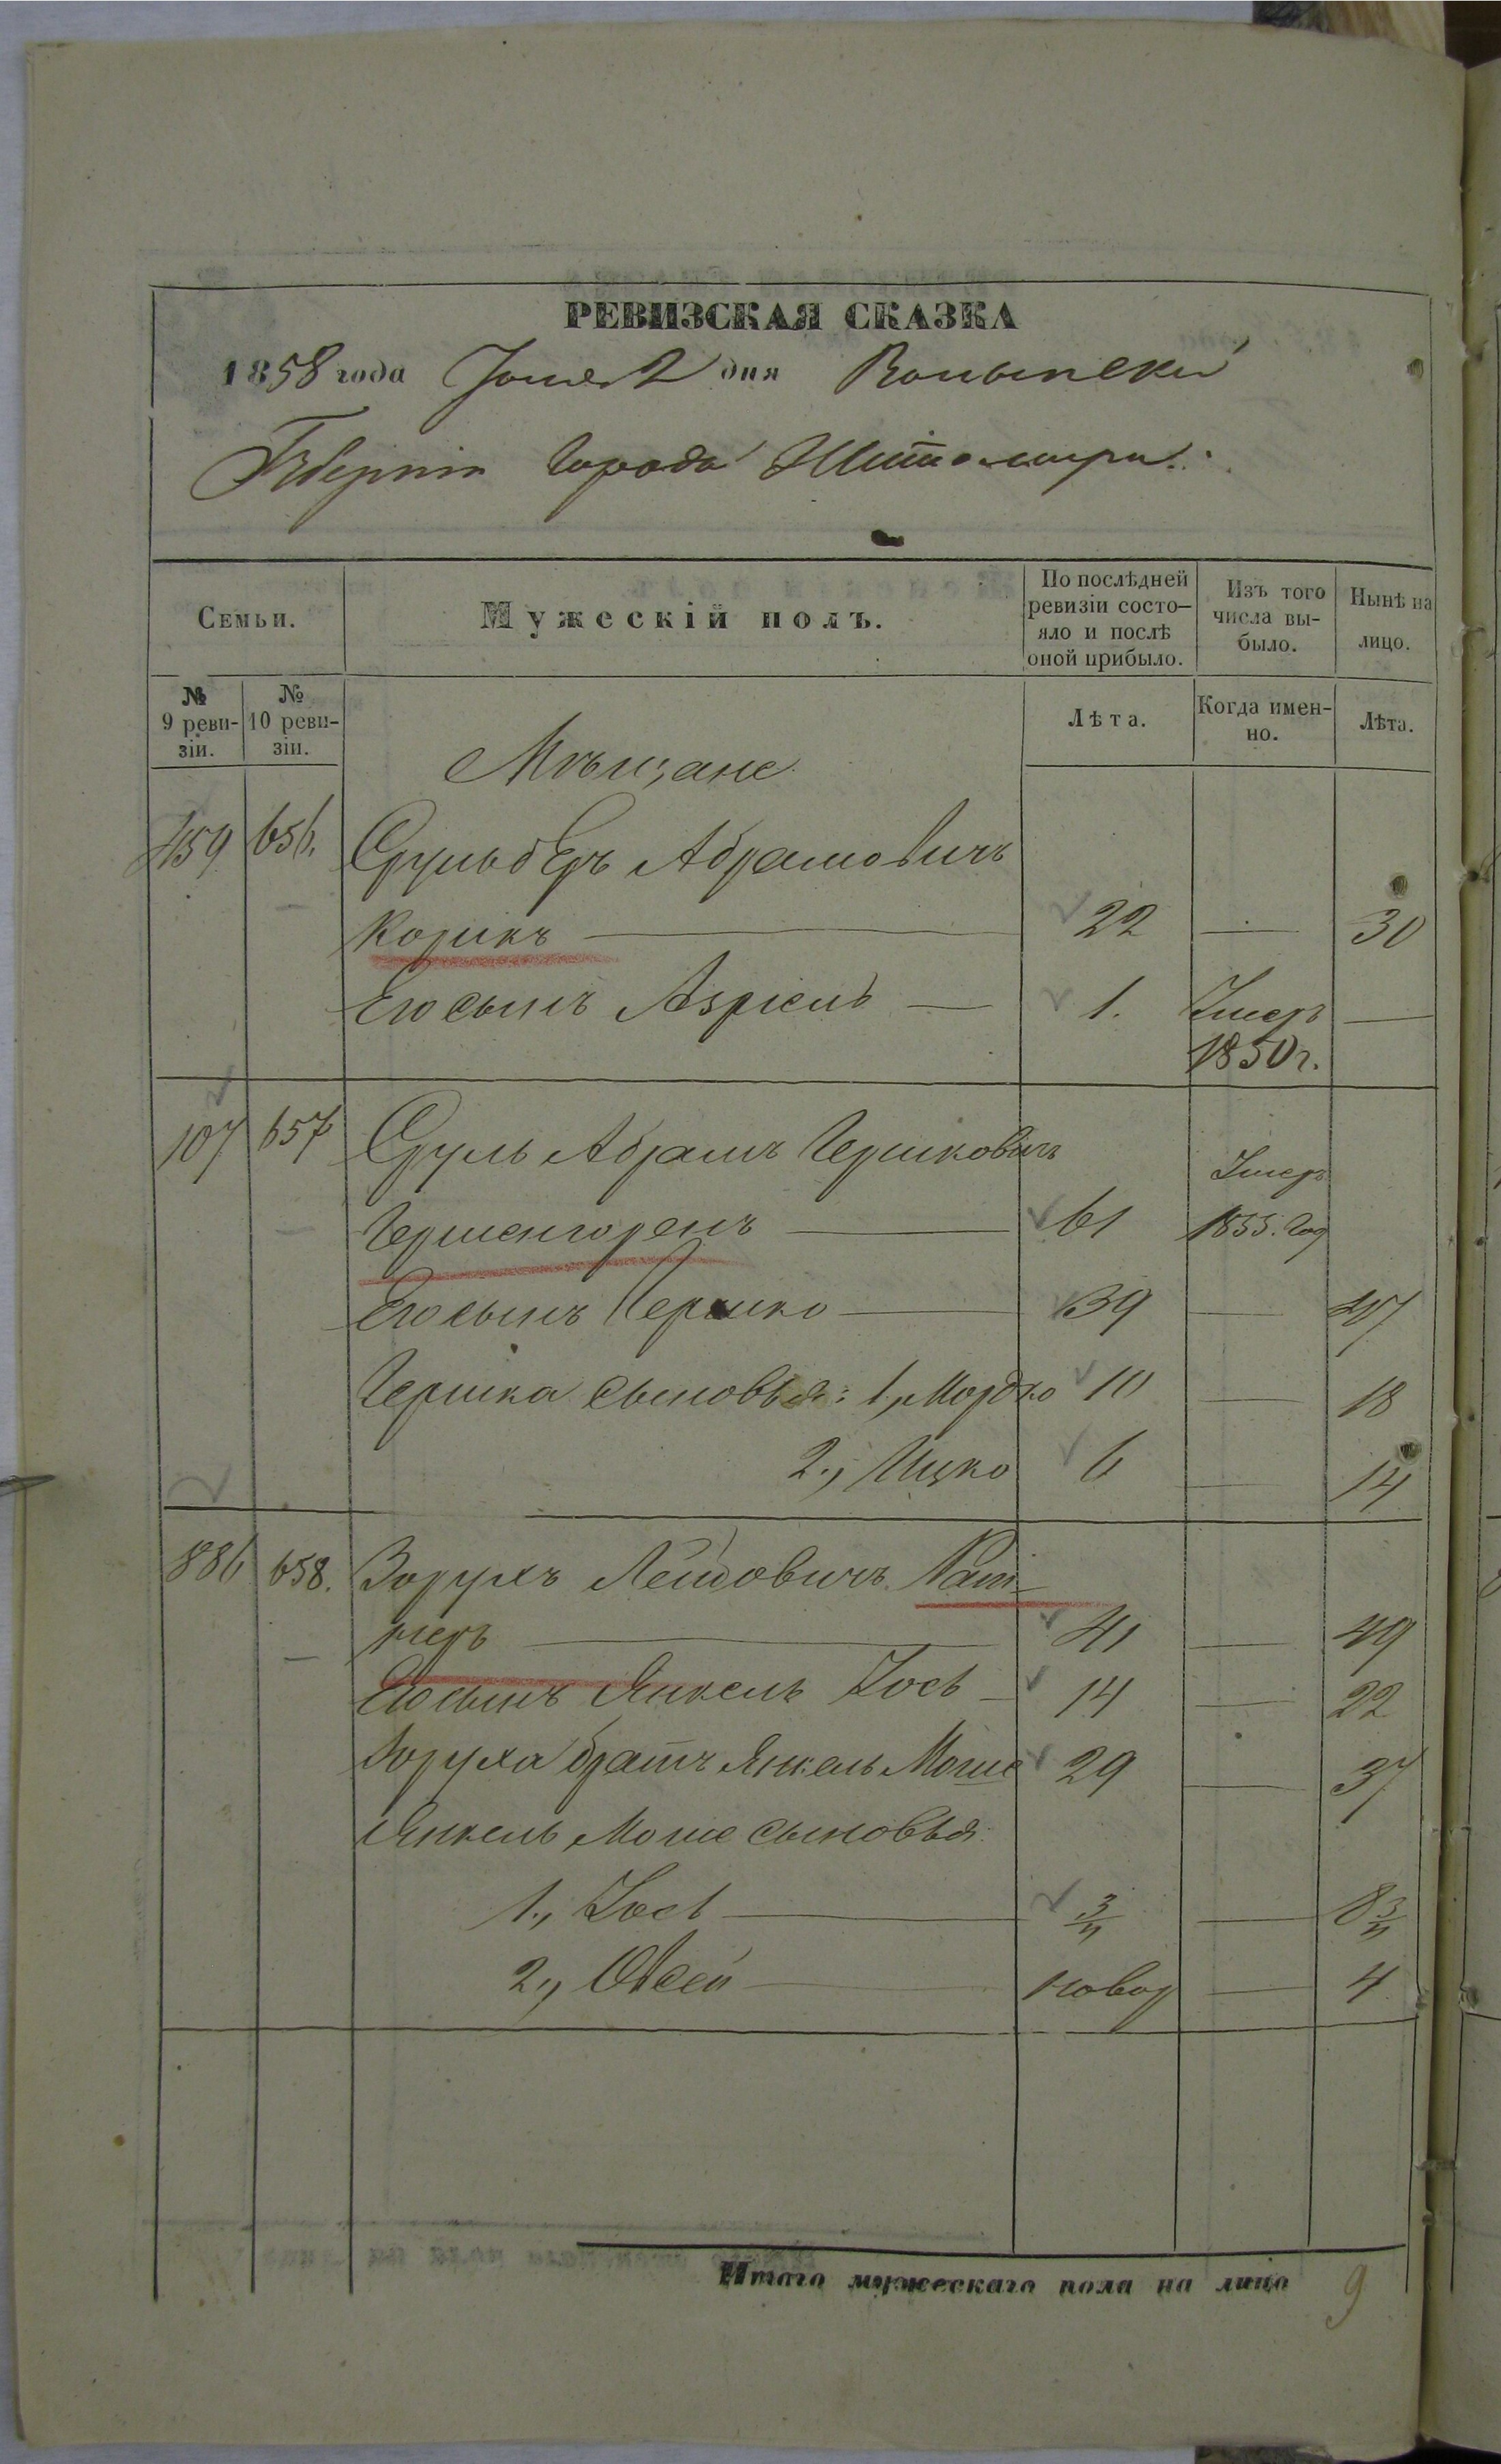 РЕВИЗСКАЯ СКАЗКА
1858 года Іюня 2 дня Волынской
Губерніи Города Житомира.
Семьи.
Мужескій полъ.
По послѣдней ревизіи состо-
яло и послѣ оной прибыло.
Изъ того числа вы-
было.
Нынѣ на лицо.
№ 9 реви-
зіи.
№ 10 реви-
зіи.
Лѣта.
Когда имен-
но.
Лѣта.
Мѣщане
459 656. Сруль Беръ Абрамовичъ
Корикъ — 22 — 30
Его сынъ Азріель — 1. Умеръ —
1850 г.
107 657 Сруль Абрамъ Гершковичъ Умеръ
Гершенгоренъ — 61 1855. год
Его сынъ Гершко — 39 — 47
Гершка сыновья: 1, Мордко 10 — 18
2., Ицко 6 — 14
886 658. Борухъ Лейбовичъ Рат-
неръ — 41 — 49
Его сынъ Янкель Іось — 14 — 22
Боруха братъ Янкель Моше 29 — 37
Янкель Моше сыновья
1., Іось — 3/4 — 8 3/4
2., Овсей — новор — 4
Итого мужескаго пола на лицо 9